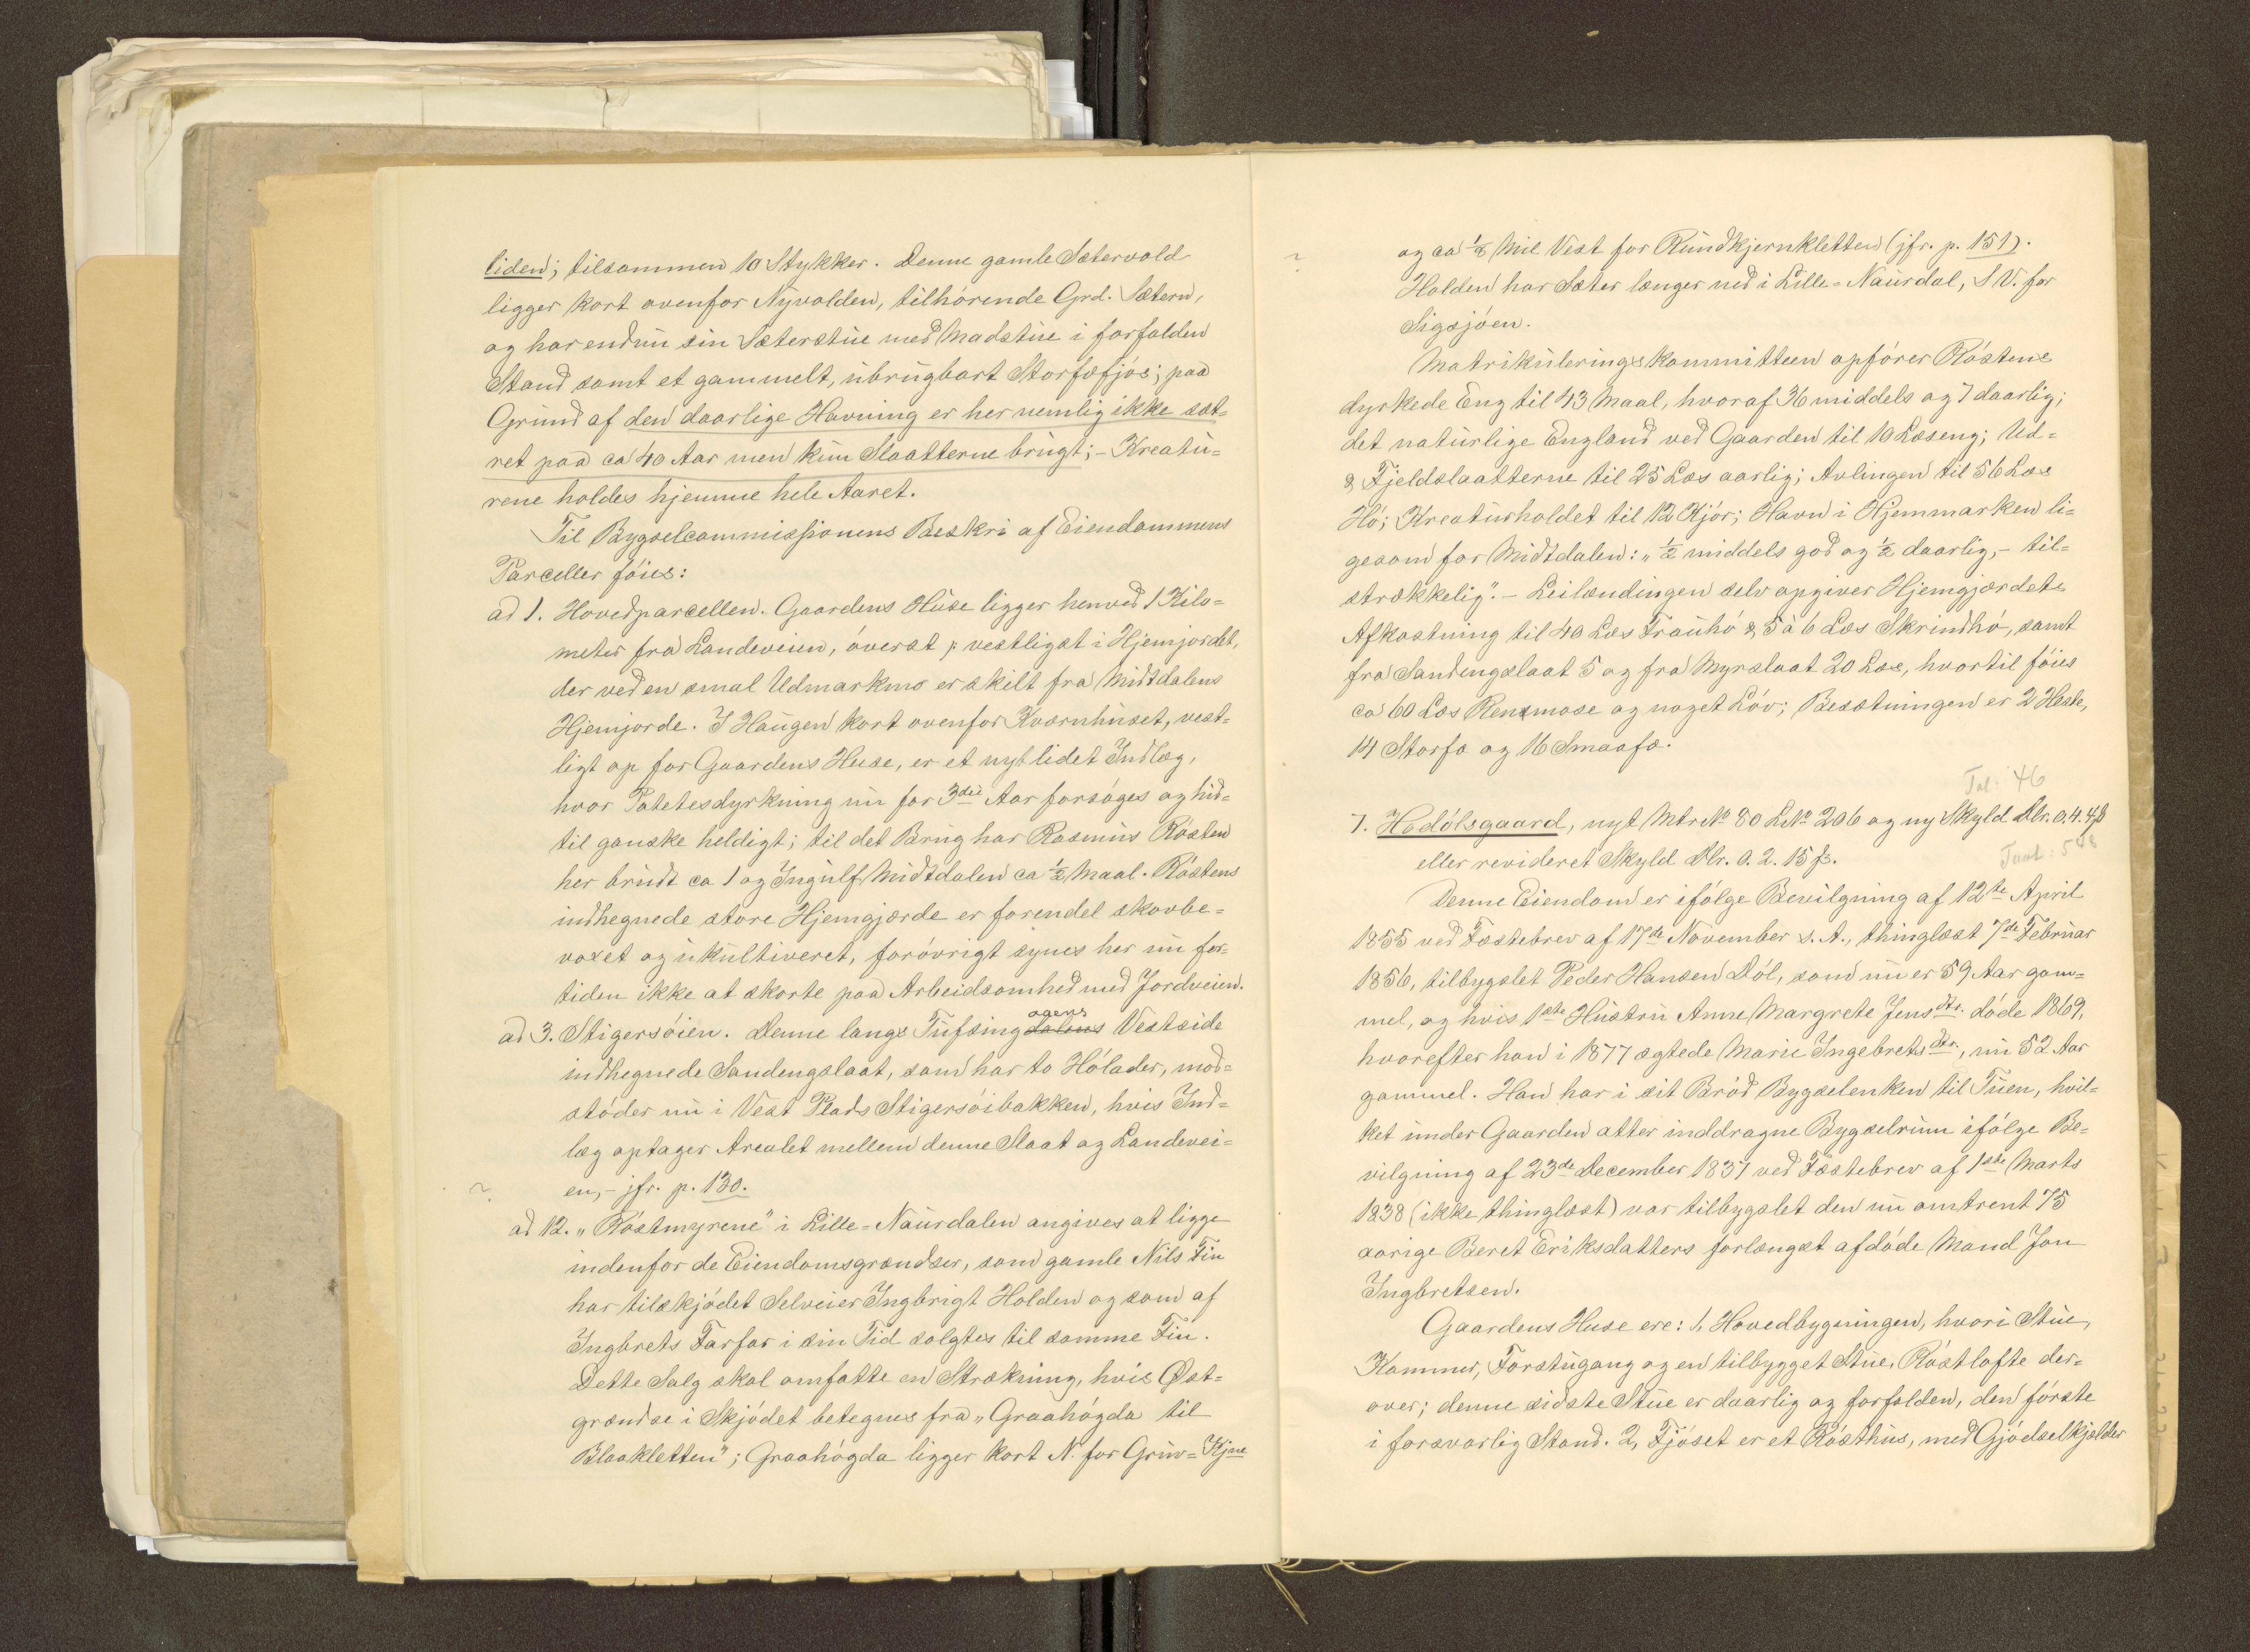 liden; tilsammen 10 Stykker. Denne gamle Sætervold
ligger kort ovenfor Nyvolden, tilhörende Grd. Sætern,
og har endnu sin Sæterstue med Madstue i forfalden
Stand samt et gammelt, ubrugbart Storfæfjös; paa
Grund af den daarlige Havning er her nemlig ikke sæt-
ret paa ca 40 Aar men kun Slaatterne brugt; - Kreatu-
rene holdes hjemme hele Aaret.
Til Bygselcommissionens Beskri af Eiendommens
Parceller föies:
ad 1. Hovedparcellen. Gaardens Huse ligger henved 1 Kilo-
meter fra Landeveien, överst & vestligst i Hjemjordet,
der ved en smal Udmarkmo er skilt fra Midtdalens
Hjemjorde. I Haugen kort ovenfor Kværnhuset, vest-
ligt op for Gaardens Huse, er et nyt lidet Indlæg,
hvor Potetesdyrkning nu for 3die Aar forsöges og hid-
til ganske heldigt; til det Brug har Rasmus Rösten
her brudt ca 1 og Ingulf Midtdalen ca ½ Maal. Röstens
indhegnede store Hjemgjærde er forendel skovbe-
voxet og ukultiveret, forövrigt synes her nu for-
tiden ikke at skorte paa Arbeidsomhed med Jordveien.
ad 3. Stigersöien. Denne langs Tufsingdalens Vestside
aaens
indhegnede Sandengslaat, som har to Hölader, mod-
stöder nu i Vest Plads Stigersöibakken, hvis Ind-
læg optager Arealet mellem denne Slaat og Landevei-
? en, - jfr. p. 130.
ad 12. „Röstmyrene" i Lille-Naurdalen angives at ligge
indenfor de Eiendomsgrændser, som gamle Nils Fin
har tilskjödet Selveier Ingbrigt Holden og som af
Ingbrets Farfar i sin Tid solgtes til samme Fin.
Dette Salg skal omfatte en Strækning, hvis Øst-
grændse i Skjödet betegnes fra „Graahögda til
Blaakletten"; Graahögda ligger kort N. for Gruv-Kjne
? og ca ⅛ Mil Vest for Rundkjernkletten (jfr. p. 151).
Holden har Sæter længer ned i Lille-Naurdal, S V. for
Sigsjöen.
Matrikuleringskommitteen opförer Röstens
dyrkede Eng til 43 Maal, hvoraf 36 middels og 7 daarlig;
det naturlige England ved Gaarden til 10 Læseng; Ud-
& Fjeldslaatterne til 25 Læs aarlig; Avlingen til 56 Læs
Hö; Kreaturholdet til 12 Kjör; Havn i Hjemmarken li-
gesom for Midtdalen: „½ middels god og ½ daarlig, - til-
strækkelig". - Leilændingen selv opgiver Hjemgjærdets
Afkastning til 40 Læs Frauhö & 5 à 6 Læs Skrindhö, samt
fra Sandengslaat 5 og fra Myrslaat 20 Læs, hvortil föies
ca 60 Læs Rensmose og noget Löv; Besætningen er 2 Heste,
14 Storfæ og 16 Smaafæ.
Tal: 46
7. Hodölsgaard, nyt Mtr№ 80 L№ 206 og ny Skyld Dlr. 0.4.4ß
eller revideret Skyld Dlr. 0. 2. 15 ß.
Taat: 548
Denne Eiendom er ifölge Bevilgning af 12te April
1855 ved Fæstebrev af 17de November s. A., thinglæst 7de Februar
1856, tilbygslet Peder Hansen Döl, som nu er 59 Aar gam-
mel, og hvis 1ste Hustru Anne Margrete Jensdtr. döde 1869,
hvorefter han i 1877 ægtede Marie Ingebretsdtr., nu 52 Aar
gammel. Han har i sit Bröd Bygselenken til Tuen, hvil-
ket under Gaarden atter inddragne Bygselrum ifölge Be-
vilgning af 23de December 1837 ved Fæstebrev af 1ste Marts
1838 (ikke thinglæst) var tilbygslet den nu omtrent 75
aarige Beret Eriksdatters forlængst afdöde Mand Jon
Ingbretsen.
Gaardens Huse ere: 1, Hovedbygningen, hvori Stue,
Kammer, Forstugang og en tilbygget Stue, Röstlofte der-
over; denne sidste Stue er daarlig og forfalden, den förste
i forsvarlig Stand. 2, Fjöset er et Rösthus, med Gjödselkjælder